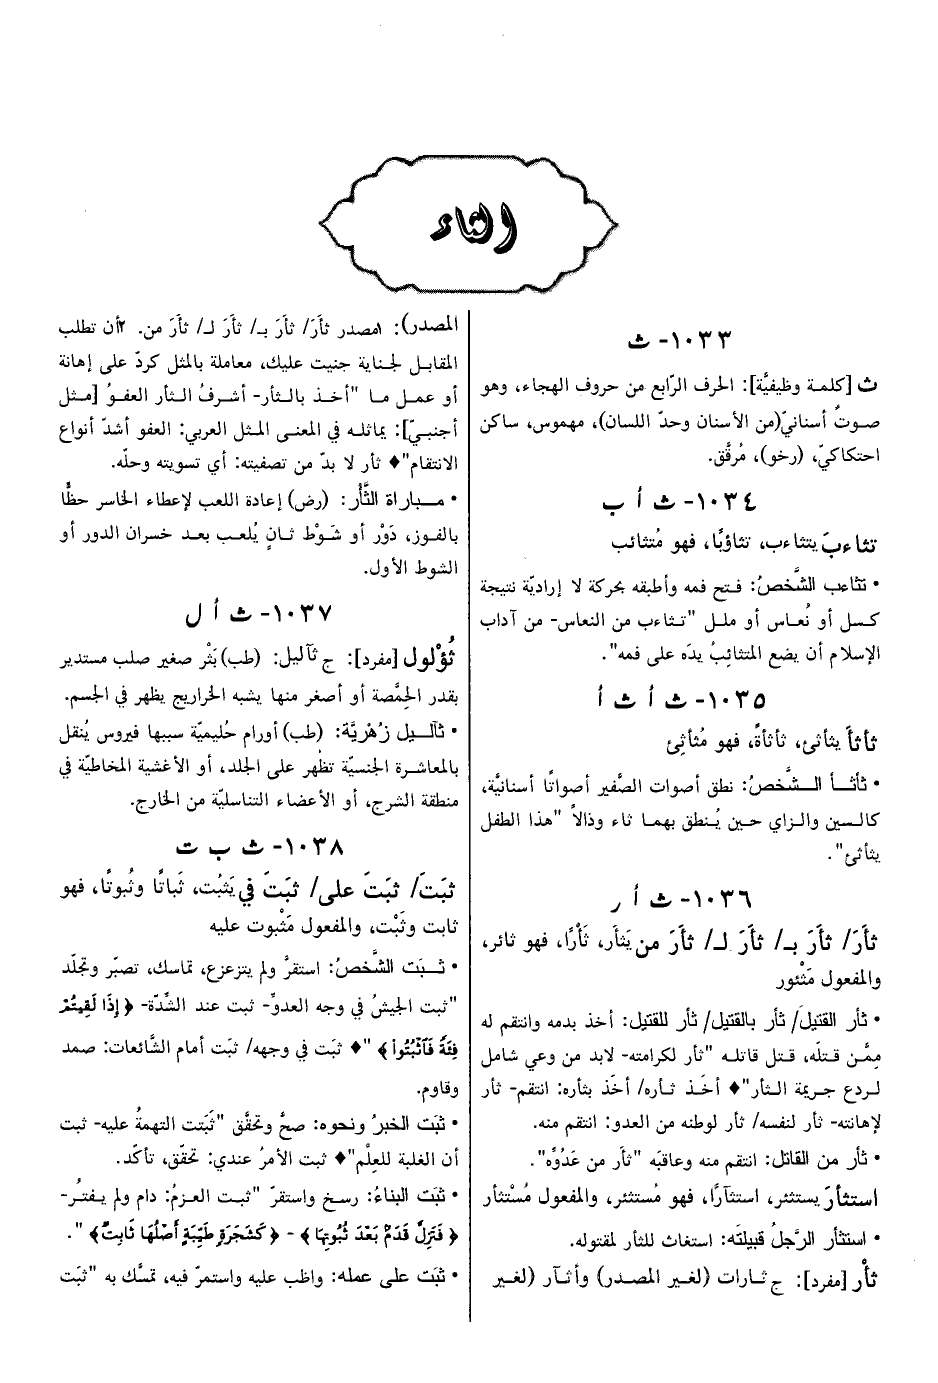 الثاء
١٠٣٣- ث
ث [كلمة وظيفيَّة]: الحرف الرّابع من حروف الهجاء، وهو
صوتُ أسنانيّ(من الأسنان وحدّ اللسان)، مهموس، ساكن
احتكاكيّ، (رخو)، مُرقَّق.
١٠٣٤- ث أ ب
تثاءبَ يتثاءب، تثاؤبًا، فهو مُتثائب
• تثاءب الشَّخصُ: فتح فمه وأطبقه بحركة لا إراديّة نتيجة
كسل أو نُعاس أو ملل "تثاءب من النعاس- من آداب
الإسلام أن يضع المتثائبُ يدَه على فمه".
١٠٣٥- ث أ ث أ
ثأثأَ يثأثئ، ثأثأةً، فهو مُثأثِئ
• ثأثأ الشَّخصُ: نطق أصوات الصَّفير أصواتًا أسنانيَّة،
كالسين والزاي حين يُنطق بهما ثاء وذالاً "هذا الطفل
يثأثئ".
١٠٣٦- ث أ ر
ثأرَ/ ثأرَ بـ/ ثأرَ لـ/ ثأرَ من يَثأر، ثَأْرًا، فهو ثائر،
والمفعول مَثْئور
• ثأر القتيلَ/ ثأر بالقتيل/ ثأر للقتيل: أخذ بدمه وانتقم له
مِمَّن قتلَه، قتل قاتله "ثأر لكرامته- لابد من وعي شامل
لردع جريمة الثأر"♦ أخَذ ثأره/ أخَذ بثأره: انتقم- ثأر
لإهانته- ثأر لنفسه/ ثأر لوطنه من العدو: انتقم منه.
• ثأر من القاتل: انتقم منه وعاقبَه "ثأر من عَدُوِّه".
استثأرَ يستثئر، استثآرًا، فهو مُستثئر، والمفعول مُسْتثأر
• استثأر الرَّجلُ قبيلتَه: استغاث للثأر لمقتوله.
ثأْر [مفرد]: ج ثارات (لغير المصدر) وأثآر (لغير
المصدر): ١مصدر ثأرَ/ ثأرَ بـ/ ثأرَ لـ/ ثأرَ من. ٢أن تطلب
المقابل لجناية جنيت عليك، معاملة بالمثل كردّ على إهانة
أو عمل ما "أخذ بالثأر- أشرفُ الثأر العفوُ [مثل
أجنبيّ]: يماثله في المعنى المثل العربي: العفو أشدّ أنواع
الانتقام"♦ ثأر لا بدّ من تصفيته: أي تسويته وحلّه.
• مباراة الثَّأْر: (رض) إعادة اللعب لإعطاء الخاسر حظًّا
بالفوز، دَوْر أو شَوْط ثانٍ يُلعب بعد خسران الدور أو
الشوط الأول.
١٠٣٧- ث أ ل
ثُؤْلول [مفرد]: ج ثآليل: (طب) بَثْر صغير صلب مستدير
بقدر الحِمَّصة أو أصغر منها يشبه الخراريج يظهر في الجسم.
• ثآليل زُهْريَّة: (طب) أورام حُليميّة سببها فيروس يُنقل
بالمعاشرة الجنسيّة تظهر على الجلد، أو الأغشية المخاطيّة في
منطقة الشرج، أو الأعضاء التناسليّة من الخارج.
١٠٣٨- ث ب ت
ثبَتَ/ ثبَتَ على/ ثبَتَ في يَثبُت، ثَباتًا وثُبوتًا، فهو
ثابت وثَبْت، والمفعول مَثْبوت عليه
• ثبَت الشَّخصُ: استقرَّ ولم يتزعزع، تماسك، تصبّر وتجلّد
"ثبت الجيشُ في وجه العدوِّ- ثبت عند الشِّدّة- ﴿ إِذَا لَقِيتُمْ
فِئَةً فَٱثْبُتُواْ ﴾ "♦ ثبَت في وجهه/ ثبَت أمام الشَّائعات: صمد
وقاوم.
• ثبَت الخبرُ ونحوه: صحَّ وتحقَّق "ثَبَتت التهمةُ عليه- ثبت
أن الغلبة للعِلْم"♦ ثبت الأمرُ عندي: تحقّق، تأكّد.
• ثبَت البناءُ: رسخ واستقرّ "ثبت العزمُ: دام ولم يفتُر-
﴿ فَتَزِلَّ قَدَمٌ بَعْدَ ثُبُوتِهَا ﴾ - ﴿ كَشَجَرَةٍ طَيِّبَةٍ أَصْلُهَا ثَابِتٌ ﴾ ".
• ثبَت على عمله: واظب عليه واستمرّ فيه، تمسَّك به "ثبَت